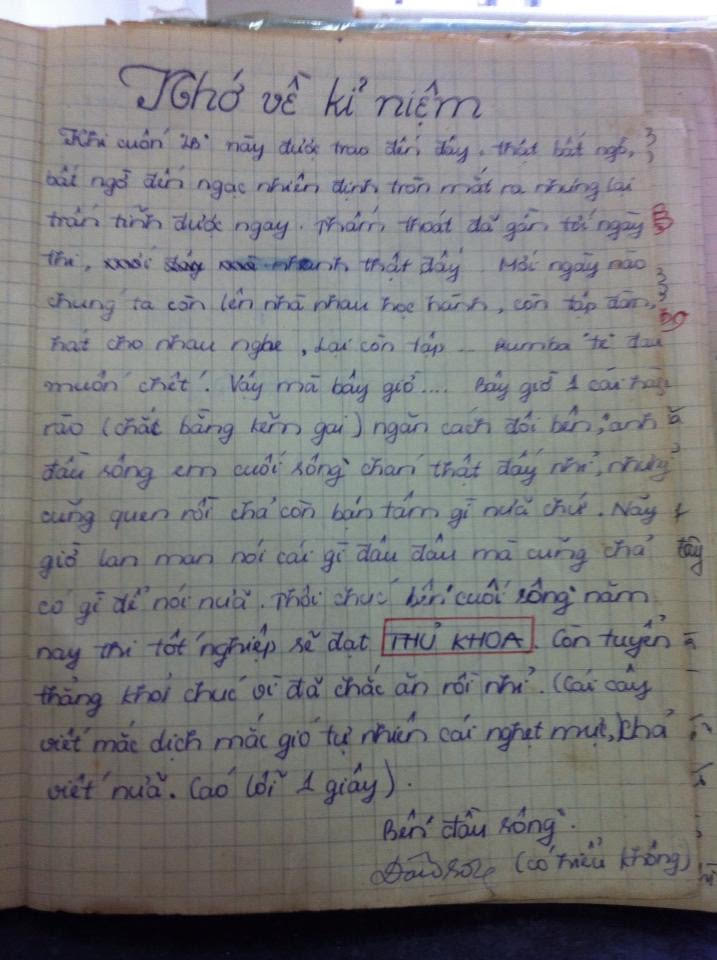 Nhớ về kỉ niệm
Khi cuốn LB này được trao đến đây, thật bất ngờ,
bất ngờ đến ngạc nhiên định tròn mắt ra nhưng lại
trấn tĩnh được ngay. Thấm thoát đã gần tới ngày
thi, nhanh thật đấy. Mới ngày nào
chúng ta còn lên nhà nhau học hành, còn tập đàn,
hát cho nhau nghe, Lại còn tập ... Rumba "té đau
muốn chết". Vậy mà bây giờ .... Bây giờ 1 cái hàng
rào (chắt bằng kẽm gai) ngăn cách đôi bên, "anh
đầu sông em cuối sông" chán thật đấy nhỉ, nhưng
cũng quen rồi chả còn bận tâm gì nữa chứ. Nãy
giờ lan man nói cái gì đâu đâu mà cũng chả
có gì để nói nữa. Thôi chúc "bên cuối sông" năm
nay thi tốt nghiệp sẽ đạt THỦ KHOA. Còn tuyển
thẳng khỏi chúc vì đã chắc ăn rồi nhỉ. (Cái cây
viết mắc dịch mắc gió tự nhiên cái nghẹt mực, khả
viết nữa. Cáo lỗi 1 giây).
Bên "đầu sông".
(có hiểu không)